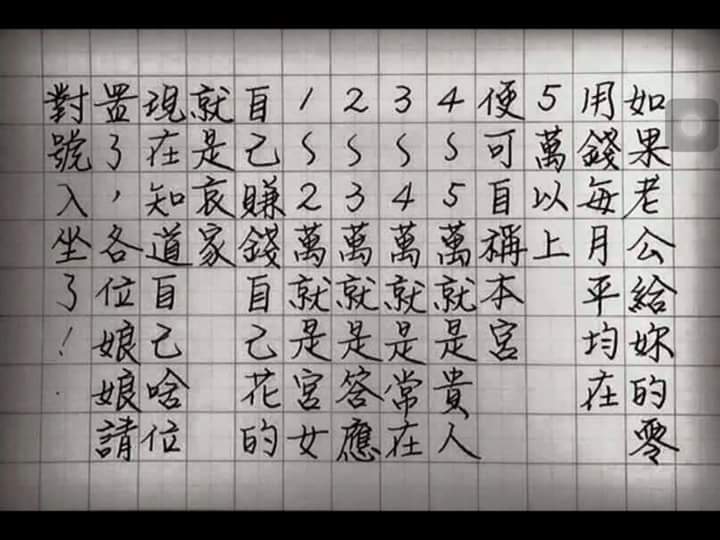 如果老公給妳的零
用錢每月平均在
5萬以上
便可自稱本宮
4~5萬就是貴人
3~4萬就是常在
2~3萬就是答應
1~2萬就是宮女
自己賺錢自己花的
就是哀家
現在知道自己啥位
置了，各位娘娘請
對號入坐了！